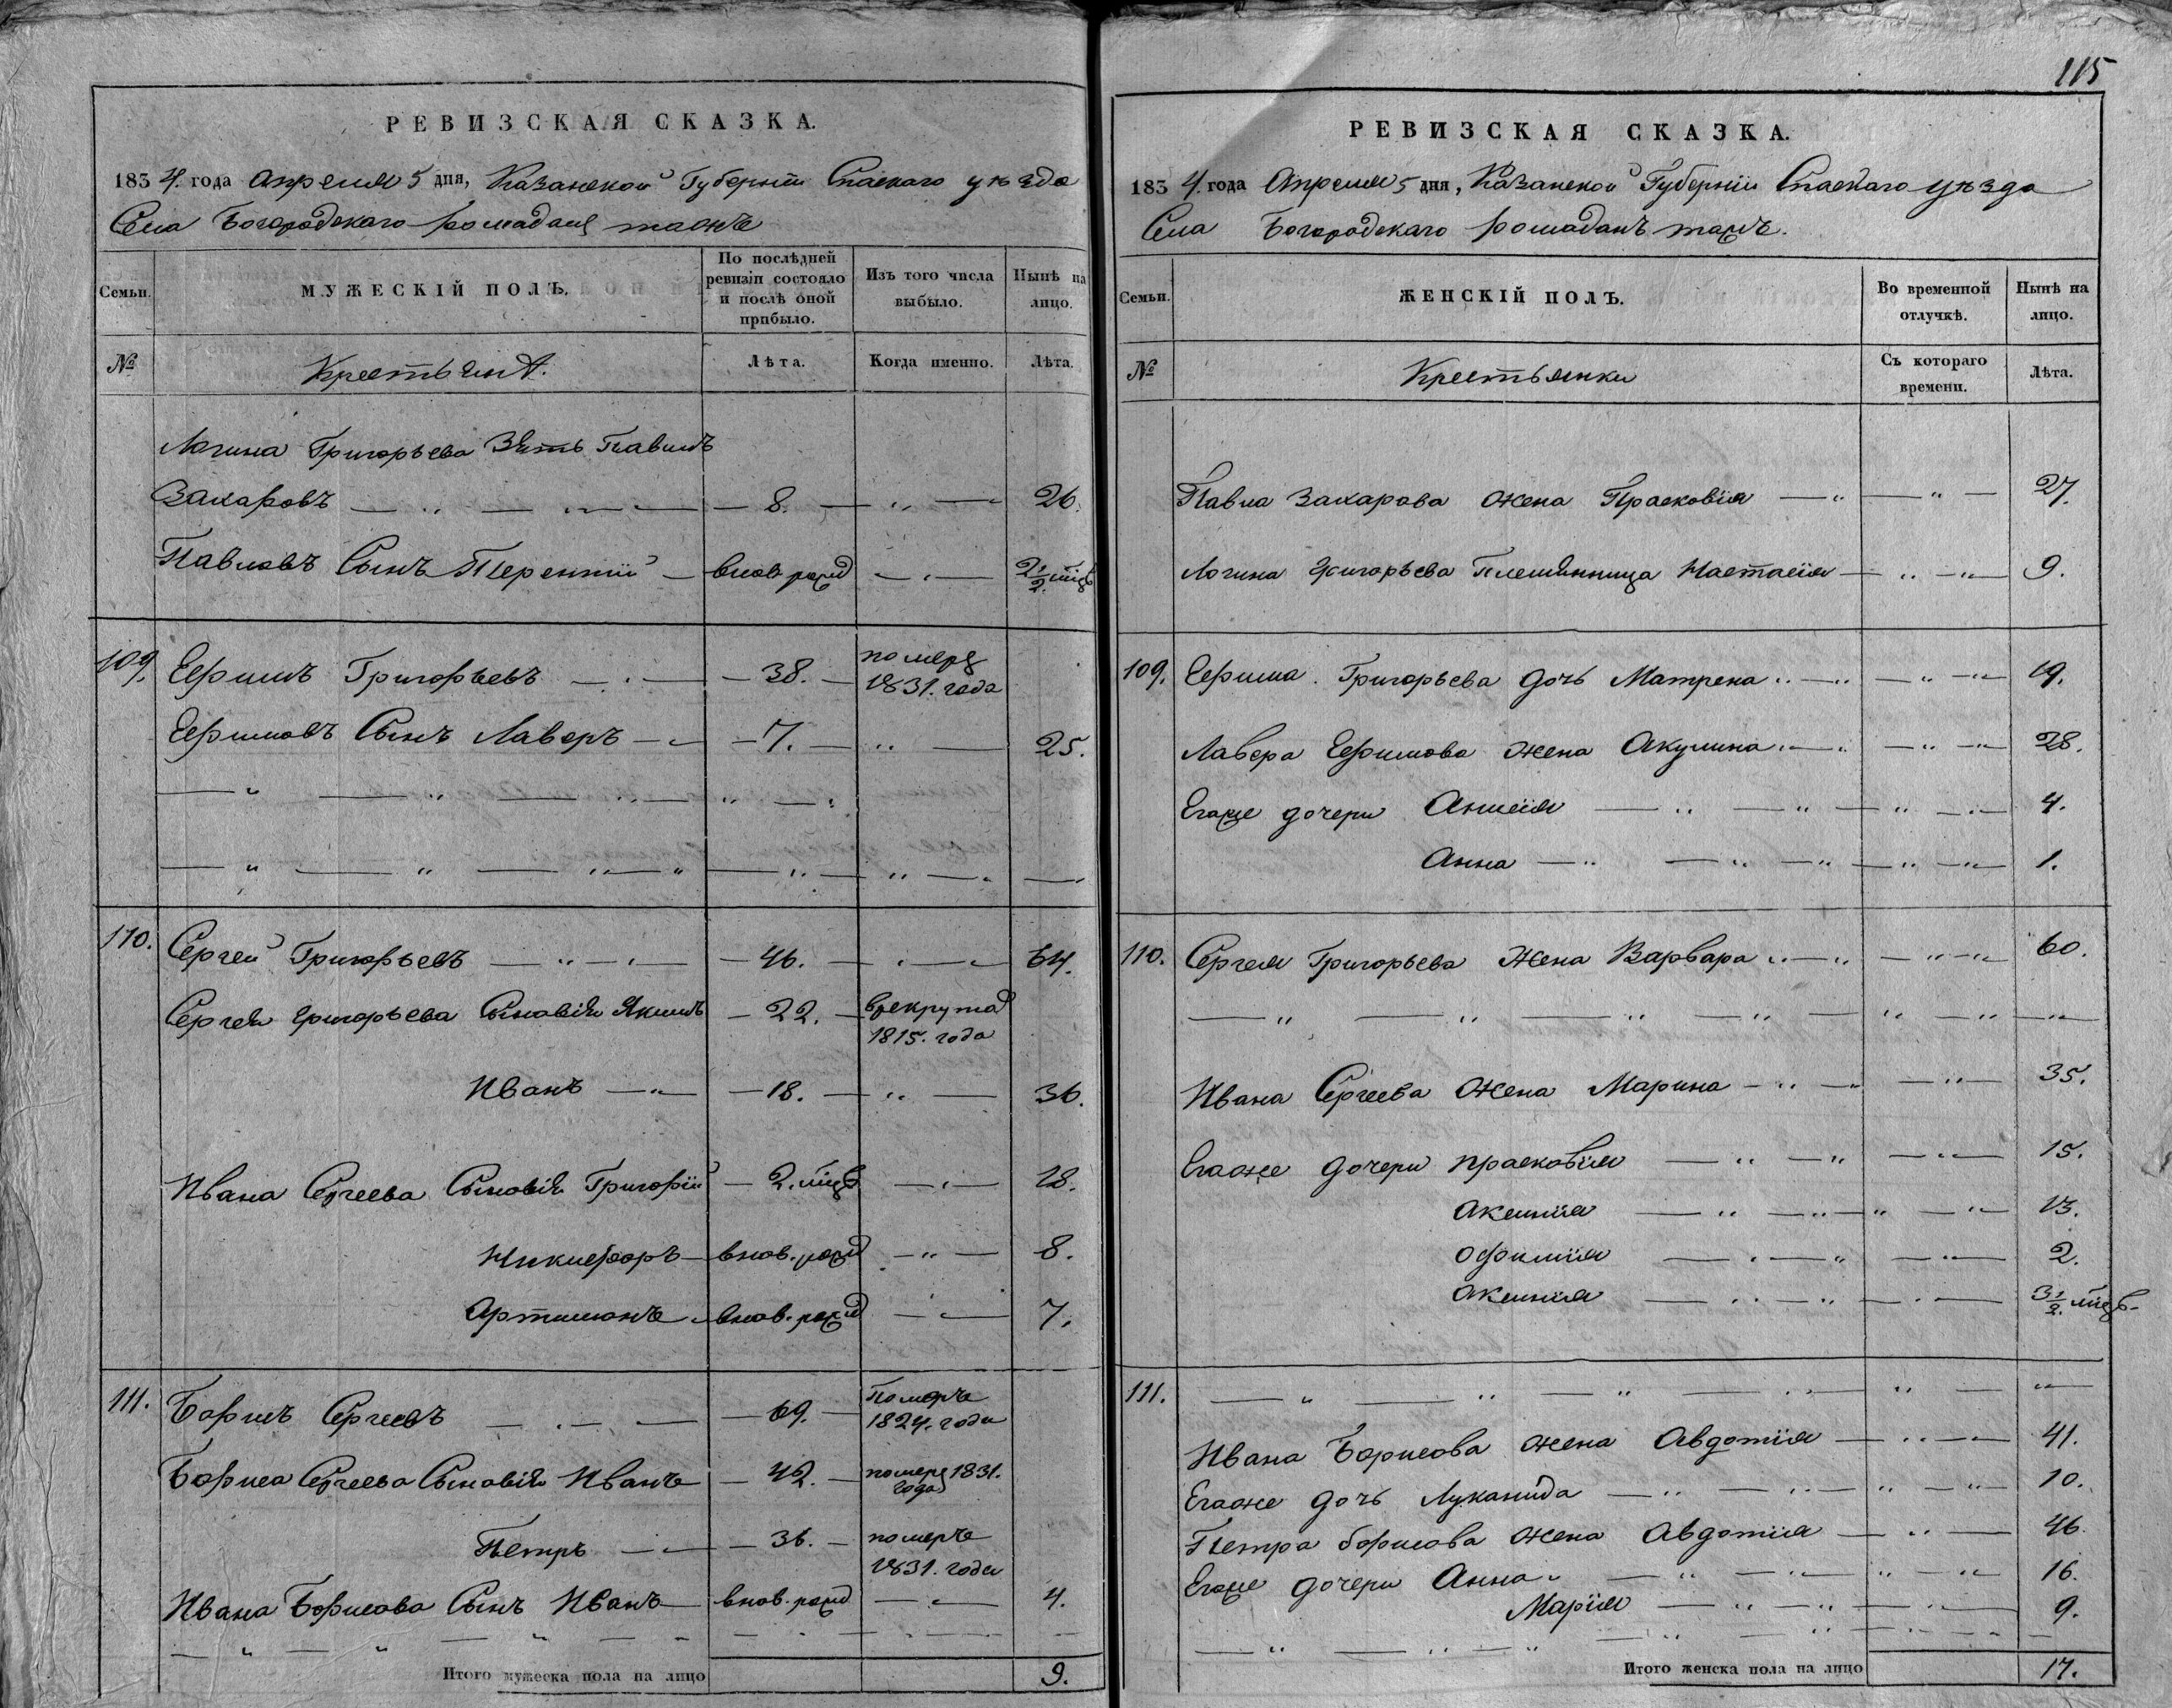 РЕВИЗСКАЯ СКАЗКА.
1834. года Апреля 5 дня, Казанской Губернии Спаскаго уѣзда
Села Богородскаго Ромадана тожъ
Семьи.
МУЖЕСКІЙ ПОЛЪ.
По послѣдней ревизіи состояло и послѣ оной прибыло.
Изъ того числа выбыло.
Нынѣ на лицо.
№
Крестьянъ.
Лѣта.
Когда именно.
Лѣта.
Логина Григорьева Зять Павилъ
Захаровъ — 8. — 26.
Павловъ Сынъ Терентий — внов рожд — 2 1/2 мцъ
109. Ефимъ Григорьевъ — 38. — помер 1831. года
Ефимовъ Сынъ Лаверъ — 7. — 25.
110. Сергей Григорьевъ — 46. — 64.
Сергея Григорьева Сыновія Якимъ — 22. — врекрута 1815. года
Иванъ — 18. — 36.
Ивана Сергеева Сыновія Григорій — 2. мцъ — 18.
Никифоръ — внов. рожд — 8.
Артимонъ — внов. рожд — 7.
111. Борисъ Сергеевъ — 69. — Померъ 1824. года
Бориса Сергеева Сыновія Иванъ — 42. — помер 1831. года
Петръ — 36. — померъ 1831. года
Ивана Борисова Сынъ Иванъ — внов. рожд — 4.
Итого мужеска пола на лицо 9.
115
РЕВИЗСКАЯ СКАЗКА.
1834. года Апреля 5 дня, Казанской Губерніи Спаскаго уѣзда
Села Богородскаго Ромаданъ тожъ.
Семьи.
ЖЕНСКІЙ ПОЛЪ.
Во временной отлучкѣ.
Нынѣ на лицо.
№
Крестьянки
Съ котораго времени.
Лѣта.
Павла Захарова жена Прасковія — 27.
Логина Григорьева Племянница Настасія — 9.
109. Ефима Григорьева дочь Матрена — 19.
Лавера Ефимова жена Акулина — 28.
Егоже дочери Анисія — 4.
Анна — 1.
110. Сергея Григорьева Жена Варвара — 60.
Ивана Сергеева жена Марина — 35.
Егоже дочери Прасковія — 15.
Аксинія — 13.
Офимія — 2.
Аксинія — 3 1/2 мцъ
111.
Ивана Борисова жена Авдотія — 41.
Егоже дочь Луканида — 10.
Петра Борисова жена Авдотія — 46.
Егоже дочери Анна — 16.
Марія — 9.
Итого женска пола на лицо 17.